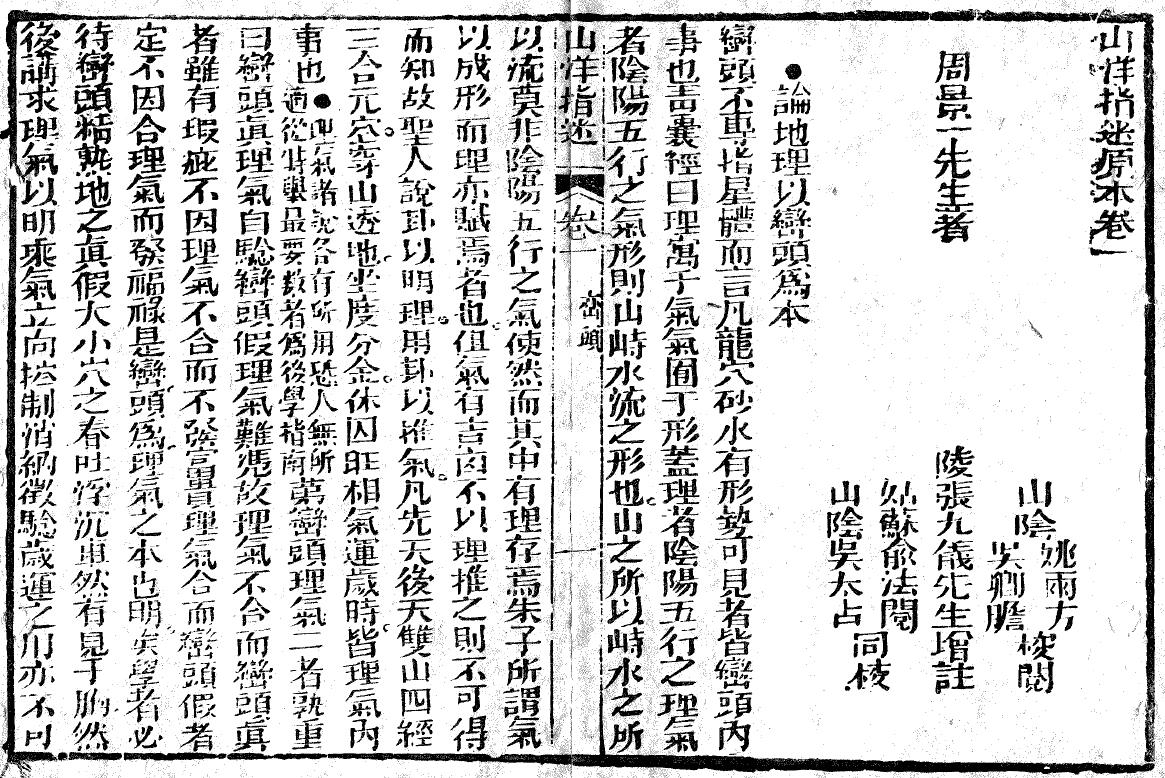 山洋指迷原本卷一
山陰
姚雨方
吳卿瞻
校閱
周景一先生著
陵張九儀先生增註
姑蘇俞法閱
山陰吳太占
同校
●論地理以巒頭爲本
巒頭不專指星體而言凡龍穴砂水有形勢可見者皆巒頭內
事也靑囊經曰理寓于氣氣囿于形蓋理者陰陽五行之理氣
者陰陽五行之氣形則山峙水流之形也山之所以峙水之所
山洋指迷 卷一 巒頭 一
以流莫非陰陽五行之氣使然而其中有理存焉朱子所謂氣
以成形而理亦賦焉者也但氣有吉凶不以理推之則不可得
而知故聖人說卦以明理用卦以推氣凡先天後天雙山四經
三合元空穿山透地坐度分金休囚旺相氣運歲時皆理氣內
事也●理氣諸說各有所用恐人無所適從特舉最要數者爲後學指南第巒頭理氣二者孰重
曰巒頭眞理氣自驗巒頭假理氣難憑故理氣不合而巒頭眞
者雖有瑕疵不因理氣不合而不發富貴理氣合而巒頭假者
定不因合理氣而發福祿是巒頭爲理氣之本也明矣學者必
待巒頭精熟地之眞假大小穴之吞吐浮沉卓然有見于胸然
後講求理氣以明乘氣立向控制消納徵驗歲運之用亦不可